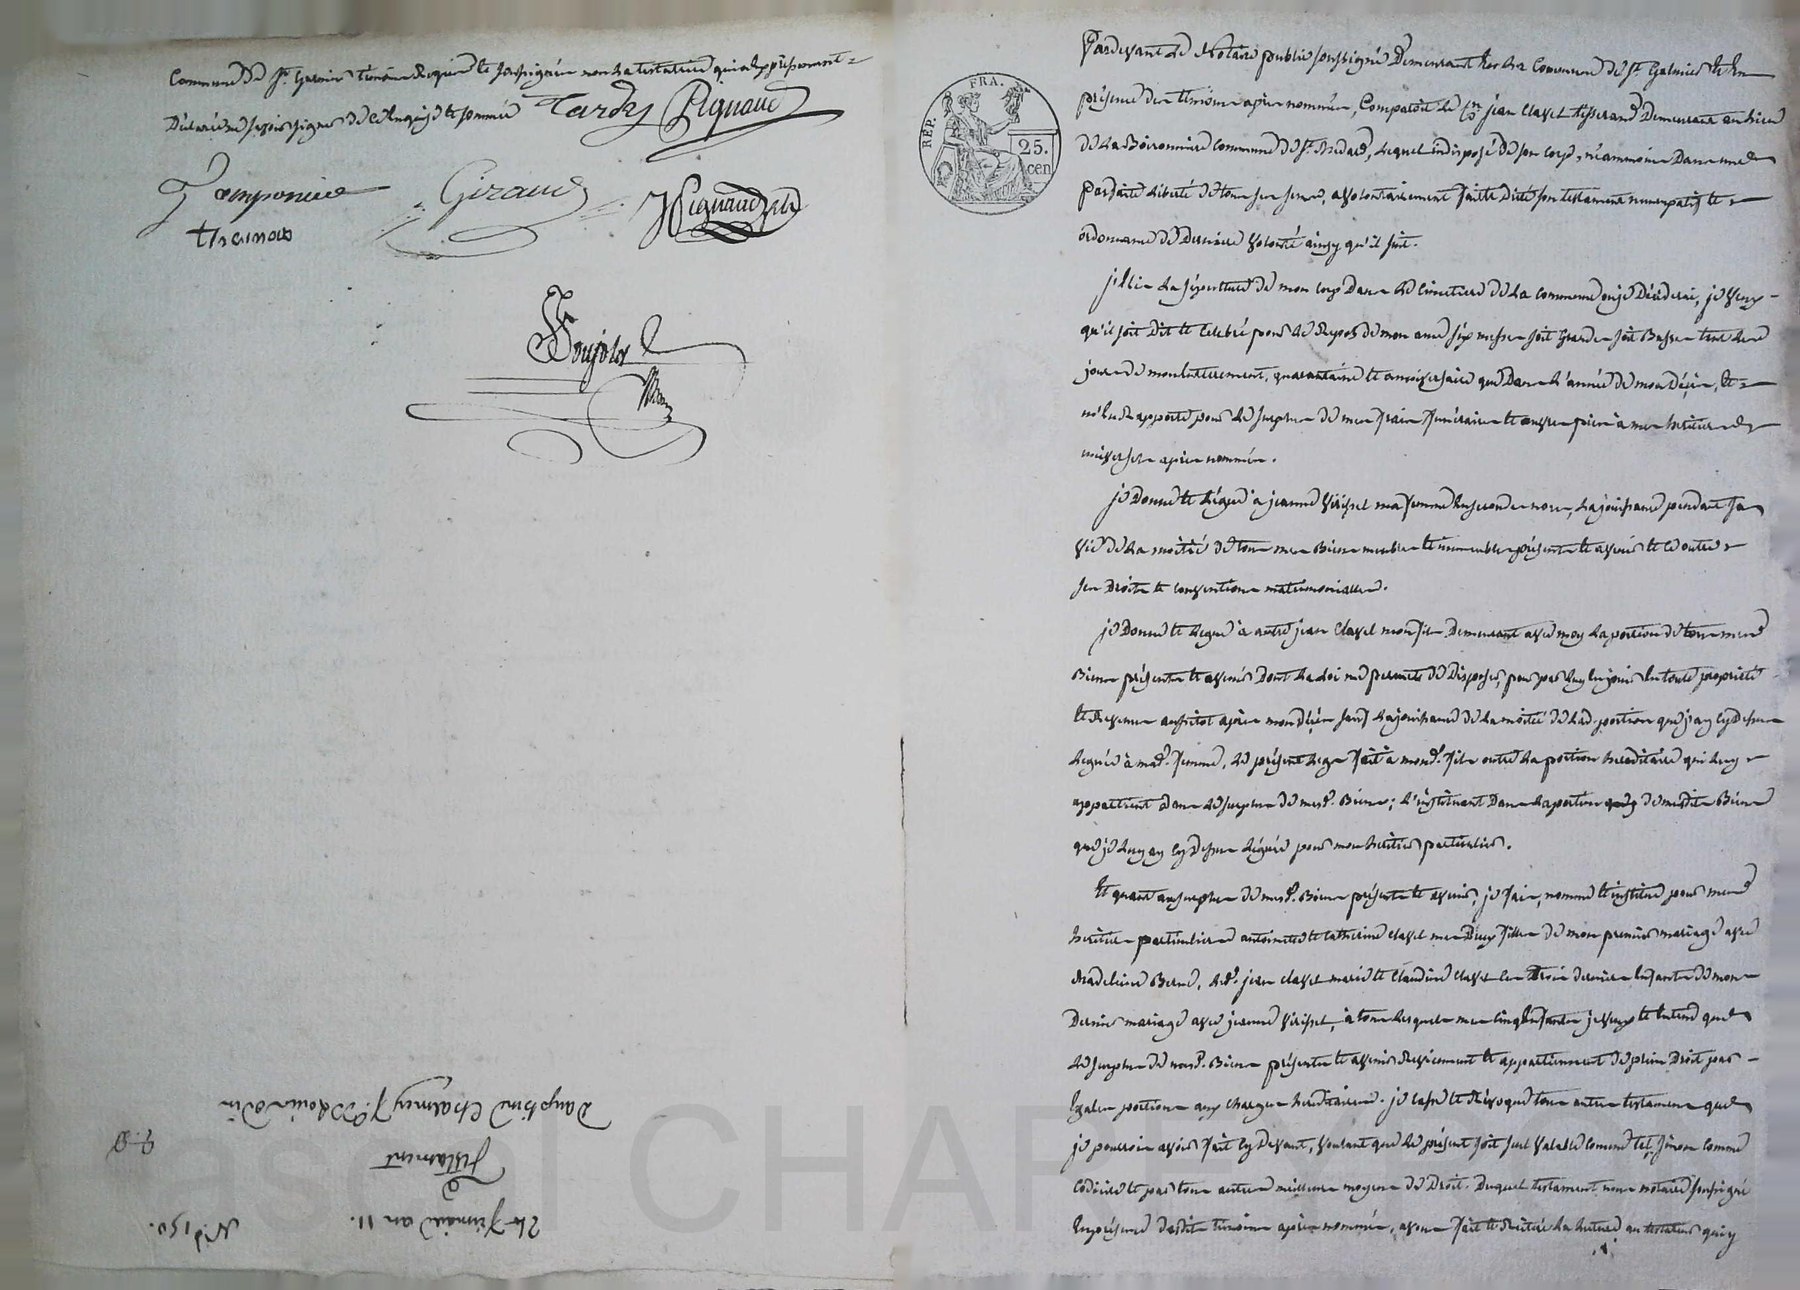 Commune de St. Galmier témoins requis et soussignés non la testatrice qui a
déclaré ne savoir signer de ce enquise et sommée Tardy Pignaud
Tamponier Giraud Pignaud fils
thevenas
Poujolas
Dauphine Charmey f.e Baloin
Testament
à
24 frimaire an 11.
N.° 150.
RÉP. FRA.
25. cen.
Pardevant le Notaire public soussigné Demeurant en la Commune de St. Galmier et en
présence des témoins après nommés, Comparoit le Cn jean Clavel tisserand Demeurant au lieu
de la Boironnière Commune de St. Medard, lequel indisposé de son corps, néanmoins dans une
parfaite liberté de tous ses sens, a volontairement fait et dicté son testament nuncupatif et
ordonnance de Dernière volonté ainsy qu'il suit.
j'élis la sépulture de mon corps dans le Cimetière de la commune ou je Décéderai, je veux
qu'il soit dit et célébré pour le Repos de mon ame six messes soit grandes soit Basses tant le
jour de mon enterrement, quarantaine et anniversaire que dans l'année de mon Décès, et
m'en rapporte pour le surplus de mes frais funéraires et œuvres pies à mes héritiers
universels après nommés.
je Donne et lègue à jeanne Virissel ma femme en secondes noces, la jouissance pendant sa
vie de la moitié de tous mes Biens meubles et immeubles présents et avenir et ce outre
ses Droits et conventions matrimoniales.
je Donne et lègue à autre jean Clavel mon fils Demeurant avec moy la portion de tous mes
Biens présents et avenir Dont la loi me permet de Disposer, pour par luy en jouir en toute propriété
et Revenus aussitot après mon décès sauf la jouissance de la moitié de lad. portion que j'ay cy dessus
léguée à mad. femme, le présent legs fait à mond. fils outre la portion héréditaire qui luy
appartient dans le surplus de mesd. Biens; l'instituant dans la portion de mesdits Biens
que je luy ay cy dessus légués pour mon héritier particulier.
Et quant au surplus de mesd. Biens présents et avenir, je fais, nomme et institue pour mes
héritiers particuliers antoinette et catherine clavel mes Deux filles de mon premier mariage avec
Madeleine Berne, led. jean clavel marie et Claudine clavel les trois derniers enfants de mon
Dernier mariage avec jeanne Virissel, à tous lesquels mes cinq enfants je veux et entend que
le surplus de mesd. Biens présents et avenir Reviennent et appartiennent de plein Droit par
Egales portions aux charges héréditaires. je casse et Révoque tous autres testaments que
je pourrois avoir fait cy devant, voulant que le présent soit seul valable comme tel, sinon comme
codicile et par tous autres meilleurs moyens de Droit. Duquel testament nous notaire soussigné
En présence desdits témoins après nommés, avons fait et Réitéré la lecture au testateur qui y